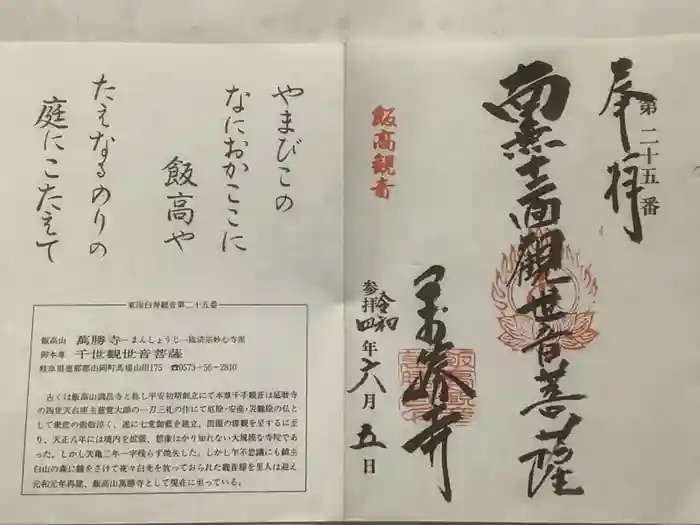 奉拝
第二十五番
南無十一面観世音菩薩
飯高観音
萬勝寺
参拝 令和四年六月五日
やまびこの
なにおかここに
飯高や
たえなるのりの
庭にこたえて
東海白寿観音第二十五番
飯高山 萬勝寺―まんしょうじ―臨済宗妙心寺派
御本尊 千世観世音菩薩
岐阜県恵那郡山岡町馬場山田175 ☎0573-56-2810
古くは飯高山満昌寺と称し平安初期創立にて本尊千手観音は延暦寺
の四世天台座主慈覚大師の一刀三礼の作にて厄除・安産・災難除の仏と
して衆世の崇敬淳く、遂に七堂伽藍を建立、周囲の塀観を呈するに至
り、天正八年には境内を拡張、想像はかり知れない大規模な寺院であ
った。しかし天亀二年一宇残らず焼失した。しかし乍不思議にも鎮主
白山の森に難をさけて夜々白光を放っておられた観音様を里人は迎え
元和元年再建、飯高山萬勝寺として現在に至っている。